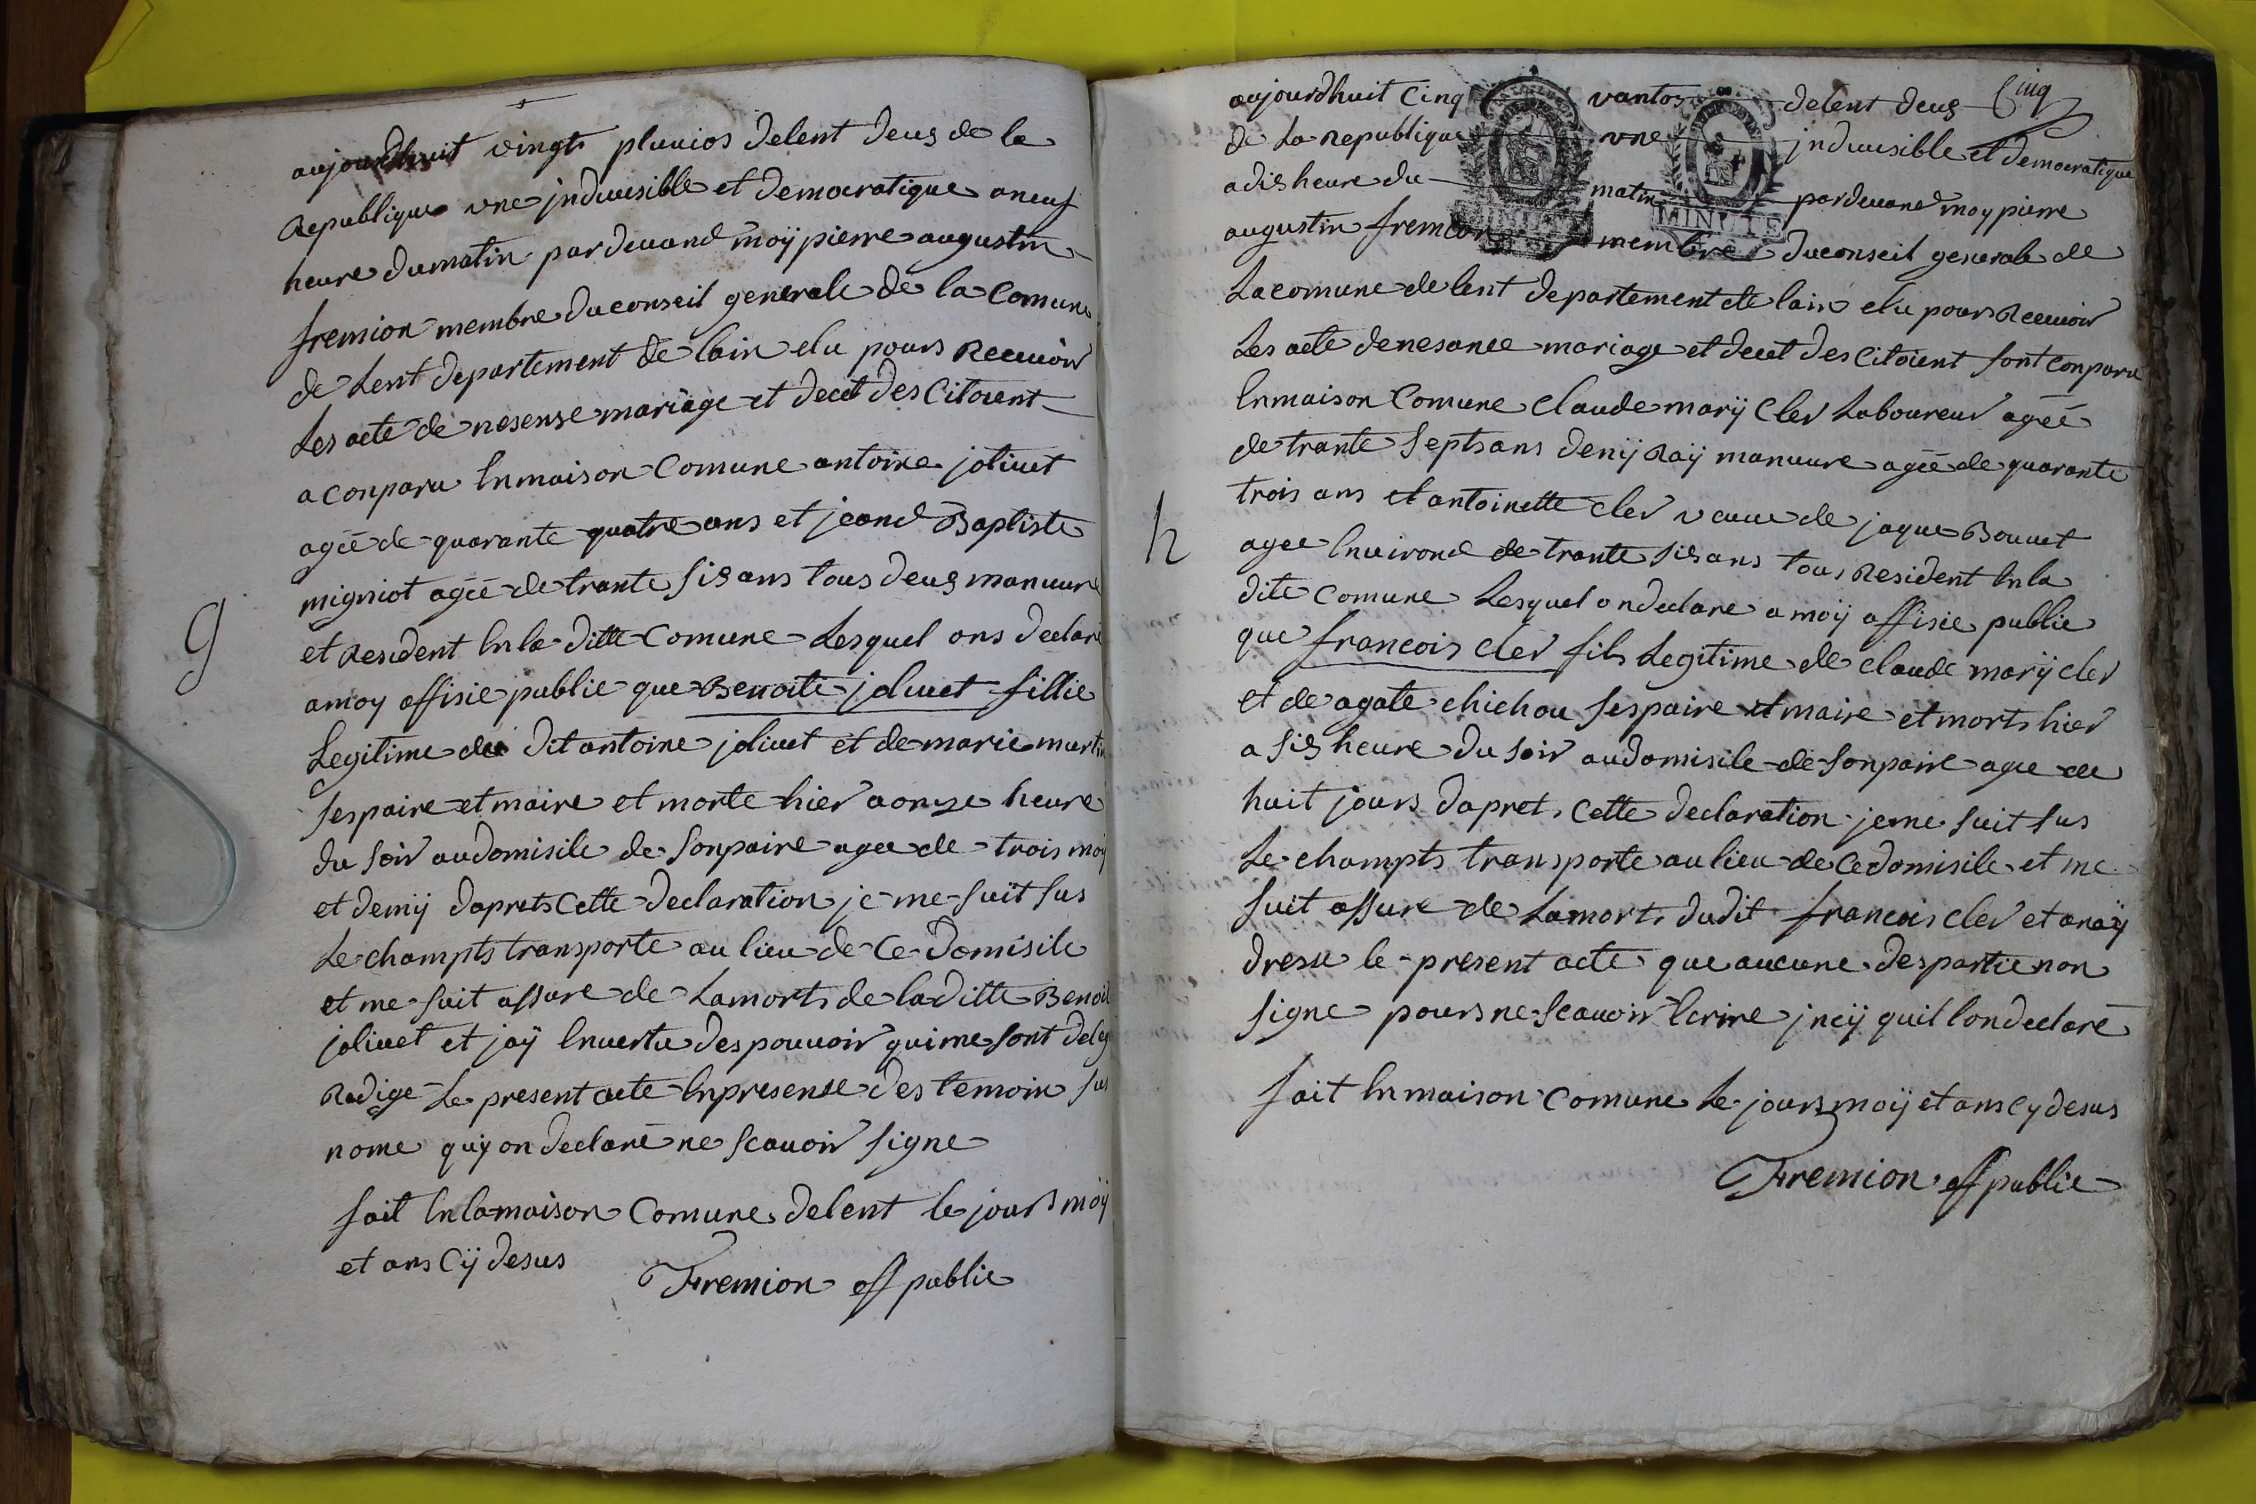 aujourdhuit vingts pluuios delent deus de la
Republique une jnduuisible et democratique aneuf
heure dumatin pardeuand moÿ pierre augustin
fremion membre duconseil generale de la Comune
de Lent departement de lain elu pours Reeuoir
Les acte de nesense mariage et decet des Citoient
a conparu Enmaison Comune antoine joliuet
ageé de quarante quatre ans et jeand Baptiste
migniot ageé de trante sis ans tous deus manuure
et Resident Enla ditte Comune Lesquel ons declare
amoy offisie publie que Benoite joliuet fillie
Legitime du dit antoine joliuet et de marie martin
sespaire et maire et morte hier a onze heure
du soir audomisile de sonpaire agee de trois moÿ
et demÿ daprets Cette declaration je me suit sus
Le champts transporte au lieu de Ce domisile
et me suit assure de Lamorts de laditte Benoit
joliuet et jaÿ Enuertu des pouuoir qui me sont deleg
Radige Le present acte Enpresense des temoin sus
nome quÿ on declaré ne scauoir signe
fait Enlamaison Comune delent le jours moÿ
et ans Cÿ desus
Fremion off publie
g
Cinq
aujourdhuit Cinq vantos delent deus
de La Republique une jnduuisible et democratique
a dis heure du matin pardeuand moy pierre
augustin fremion membre duconseil generale de
MINUTE
La comune de lent departement de lain elu pours Reeuoir
Les acte denesance mariage et decet des Citoient sont conparu
Enmaison Comune Claude marÿ Cler Laboureur ageé
de trante septs ans denÿ Raÿ manuure ageé de quarante
trois ans et antoinette cler veuue de jaque Bouuet
agee Enuirond de trante sis ans tous Resident Enla
dite Comune Lesquel on declare a moÿ offisie publie
que francois cler fils Legitime de claude marÿ cler
et de agate chichou sespaire et maire et morts hier
a sis heure du soir audomisile de sonpaire agee de
huit jours daprets Cette declaration jeme suit sus
Le champts transporte au lieu de Ce domisile et me
suit assure de Lamorts dudit francois cler et anaÿ
dresse le present acte que aucune des partie non
signe pours ne scauoir Ecrire jneÿ quil londeclaré
fait Enmaison Comune Le jours moÿ et ans cy desus
Fremion off publie
h